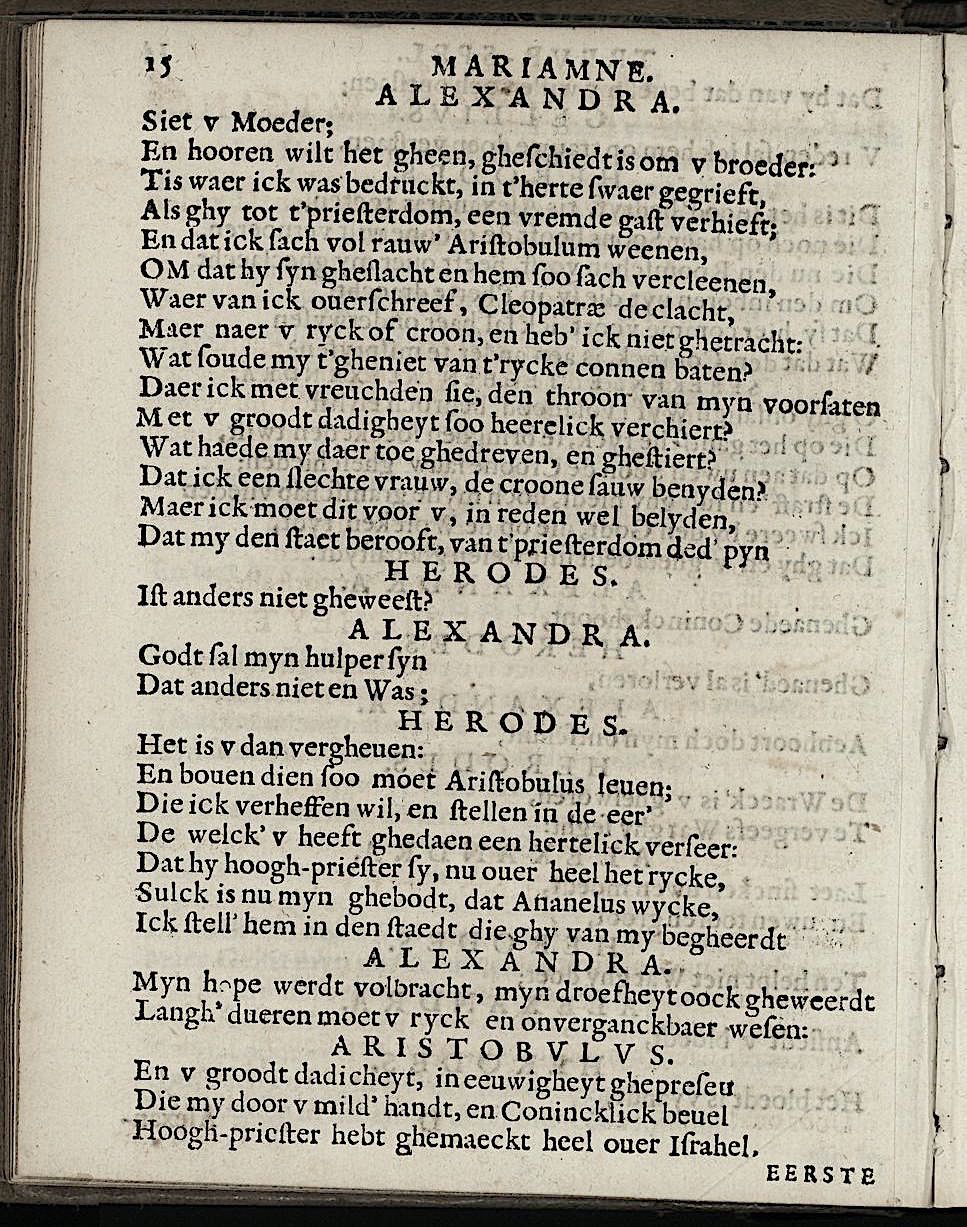 15 MARIAMNE.
ALEXANDRA.
Siet v Moeder;
En hooren wilt het gheen, gheſchiedt is om v broeder:
Tis waer ick was bedruckt, in t'herte ſwaer gegrieft,
Als ghy tot t'prieſterdom, een vremde gaſt verhieft;
En dat ick ſach vol rauw' Ariſtobulum weenen,
OM dat hy ſyn gheſlacht en hem ſoo ſach vercleenen,
Waer van ick ouerſchreef, Cleopatræ de clacht,
Maer naer v ryck of croon, en heb' ick niet ghetracht:
Wat ſoude my t'gheniet van t'rycke connen baten?
Daer ick met vreuchden ſie, den throon van myn voorſaten
Met v groodt dadigheyt ſoo heerelick verchiert?
Wat haede my daer toe ghedreven, en gheſtiert?
Dat ick een ſlechte vrauw, de croone ſauw benyden?
Maer ick moet dit voor v, in reden wel belyden,
Dat my den ſtaet berooft, van t'prieſterdom ded' pyn
HERODES.
Iſt anders niet gheweeſt?
ALEXANDRA.
Godt ſal myn hulper ſyn
Dat anders niet en Was;
HERODES.
Het is v dan vergheuen:
En bouen dien ſoo moet Ariſtobulus leuen;
Die ick verheffen wil, en ſtellen in de eer'
De welck' v heeft ghedaen een hertelick verſeer:
Dat hy hoogh-prieſter ſy, nu ouer heel het rycke,
Sulck is nu myn ghebodt, dat Ananelus wycke,
Ick ſtell' hem in den ſtaedt die ghy van my begheerdt
ALEXANDRA.
Myn hope werdt volbracht, myn droefheyt oock gheweerdt
Langh' dueren moet v ryck en onverganckbaer weſen:
ARISTOBVLVS.
En v groodt dadicheyt, in eeuwigheyt ghepreſen
Die my door v mild' handt, en Conincklick beuel
Hoogh-prieſter hebt ghemaeckt heel ouer Iſrahel.
EERSTE